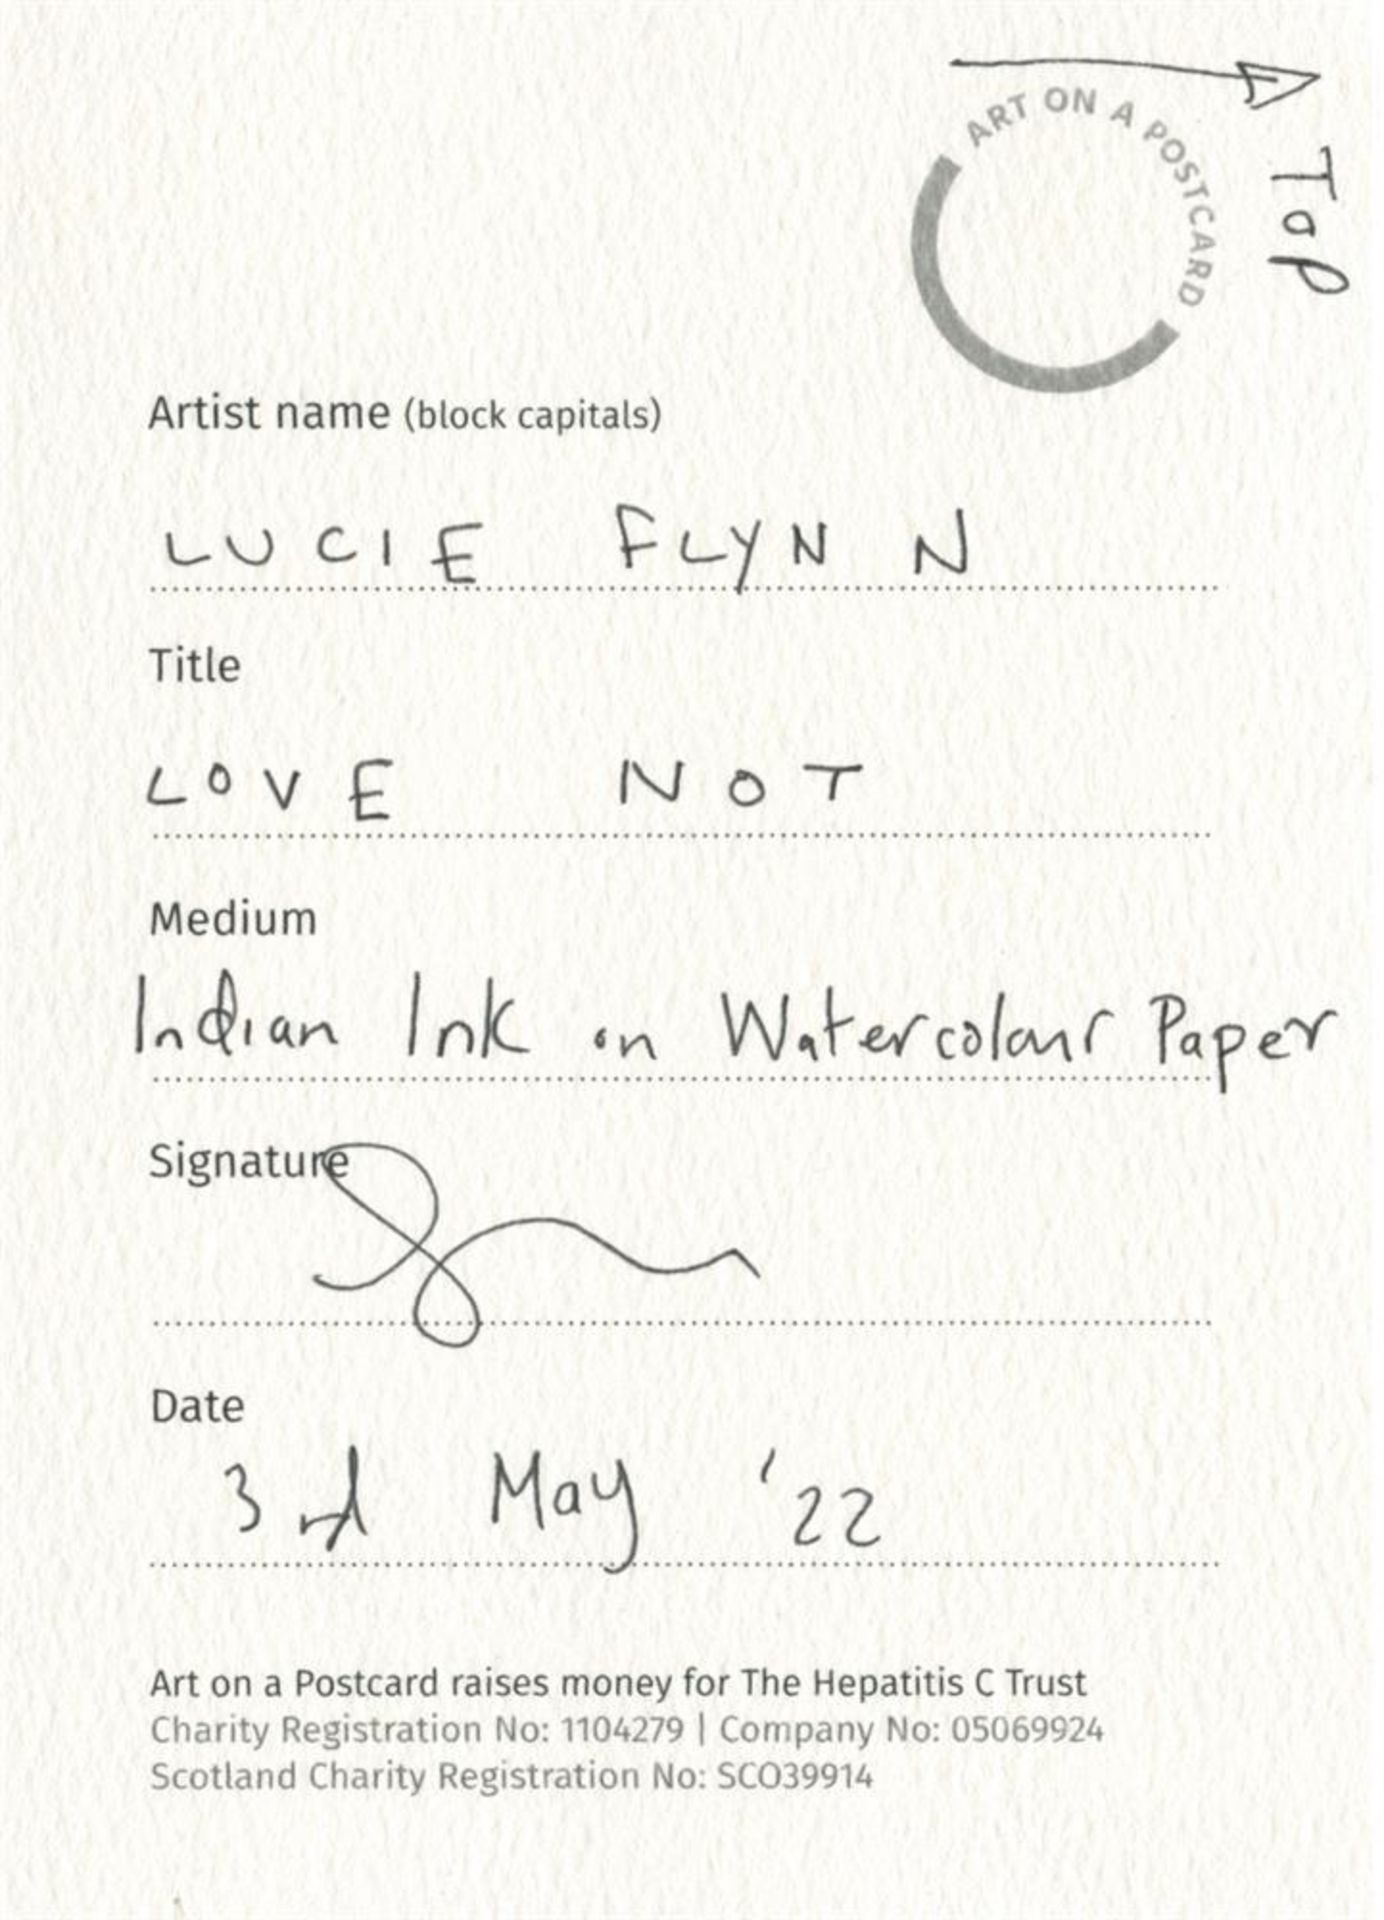 ART ON A POSTCARD
Top
Artist name (block capitals)
LUCIE FLYNN
Title
LOVE NOT
Medium
Indian Ink on Watercolour Paper
Signature
Date
3rd May '22
Art on a Postcard raises money for The Hepatitis C Trust
Charity Registration No: 1104279 | Company No: 05069924
Scotland Charity Registration No: SCO39914